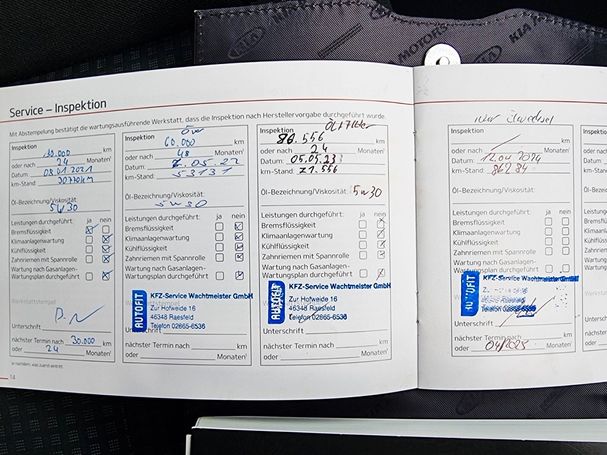 KIA MOTORS
KIA
KIA MOTORS
Service – Inspektion
Mit Abstempelung bestätigt die wartungsausführende Werkstatt, dass die Inspektion nach Herstellervorgabe durchgeführt wurde.
Inspektion
30.000 km
oder nach 24 Monaten
Datum: 08.01.2021
km-Stand:
Öl-Bezeichnung/Viskosität:
5W30
Leistungen durchgeführt: ja nein
Bremsflüssigkeit
Klimaanlagenwartung
Kühlflüssigkeit
Zahnriemen mit Spannrolle
Wartung nach Gasanlagen-
Wartungsplan durchgeführt
Werkstattstempel
Unterschrift
nächster Termin nach 30.000 km
oder 24 Monaten¹
14
Inspektion
60.000 km
oder nach 48 Monaten
Datum: 7.05.22
km-Stand: 53131
Öl-Bezeichnung/Viskosität:
5W30
Leistungen durchgeführt: ja nein
Bremsflüssigkeit
Klimaanlagenwartung
Kühlflüssigkeit
Zahnriemen mit Spannrolle
Wartung nach Gasanlagen-
Wartungsplan durchgeführt
AUTOFIT
KFZ-Service Wachtmeister GmbH
Zur Hofweide 16
46348 Raesfeld
Telefon 02865-6536
nächster Termin nach km
oder Monaten¹
Inspektion
km
oder nach 24 Monaten
Datum: 05.05.23
km-Stand: 71.556
Öl-Bezeichnung/Viskosität: 5W30
Leistungen durchgeführt: ja nein
Bremsflüssigkeit
Klimaanlagenwartung
Kühlflüssigkeit
Zahnriemen mit Spannrolle
Wartung nach Gasanlagen-
Wartungsplan durchgeführt
AUTOFIT
KFZ-Service Wachtmeister GmbH
Zur Hofweide 16
46348 Raesfeld
Telefon 02865-6536
Unterschrift
nächster Termin nach km
oder Monaten¹
nur Ölwechsel
Inspektion
km
oder nach Monaten
Datum: 12.04.2024
km-Stand: 86234
Öl-Bezeichnung/Viskosität:
Leistungen durchgeführt: ja nein
Bremsflüssigkeit
Klimaanlagenwartung
Kühlflüssigkeit
Zahnriemen mit Spannrolle
Wartung nach Gasanlagen-
Wartungsplan durchgeführt
AUTOFIT
KFZ-Service Wachtmeister GmbH
46348 Raesfeld
Telefon 02865-6536
Unterschrift
nächster Termin nach km
oder 04/2025 Monaten¹